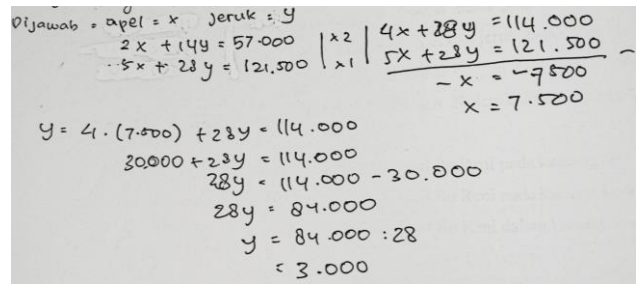 Dijawab = apel = x jeruk = y
2x + 14y = 57.000 | x2 | 4x + 28y = 114.000
5x + 28y = 121.500 | x1 | 5x + 28y = 121.500 -
- x = - 7500
x = 7.500
y = 4 . (7.500) + 28y = 114.000
30.000 + 28y = 114.000
28y = 114.000 - 30.000
28y = 84.000
y = 84.000 : 28
= 3.000